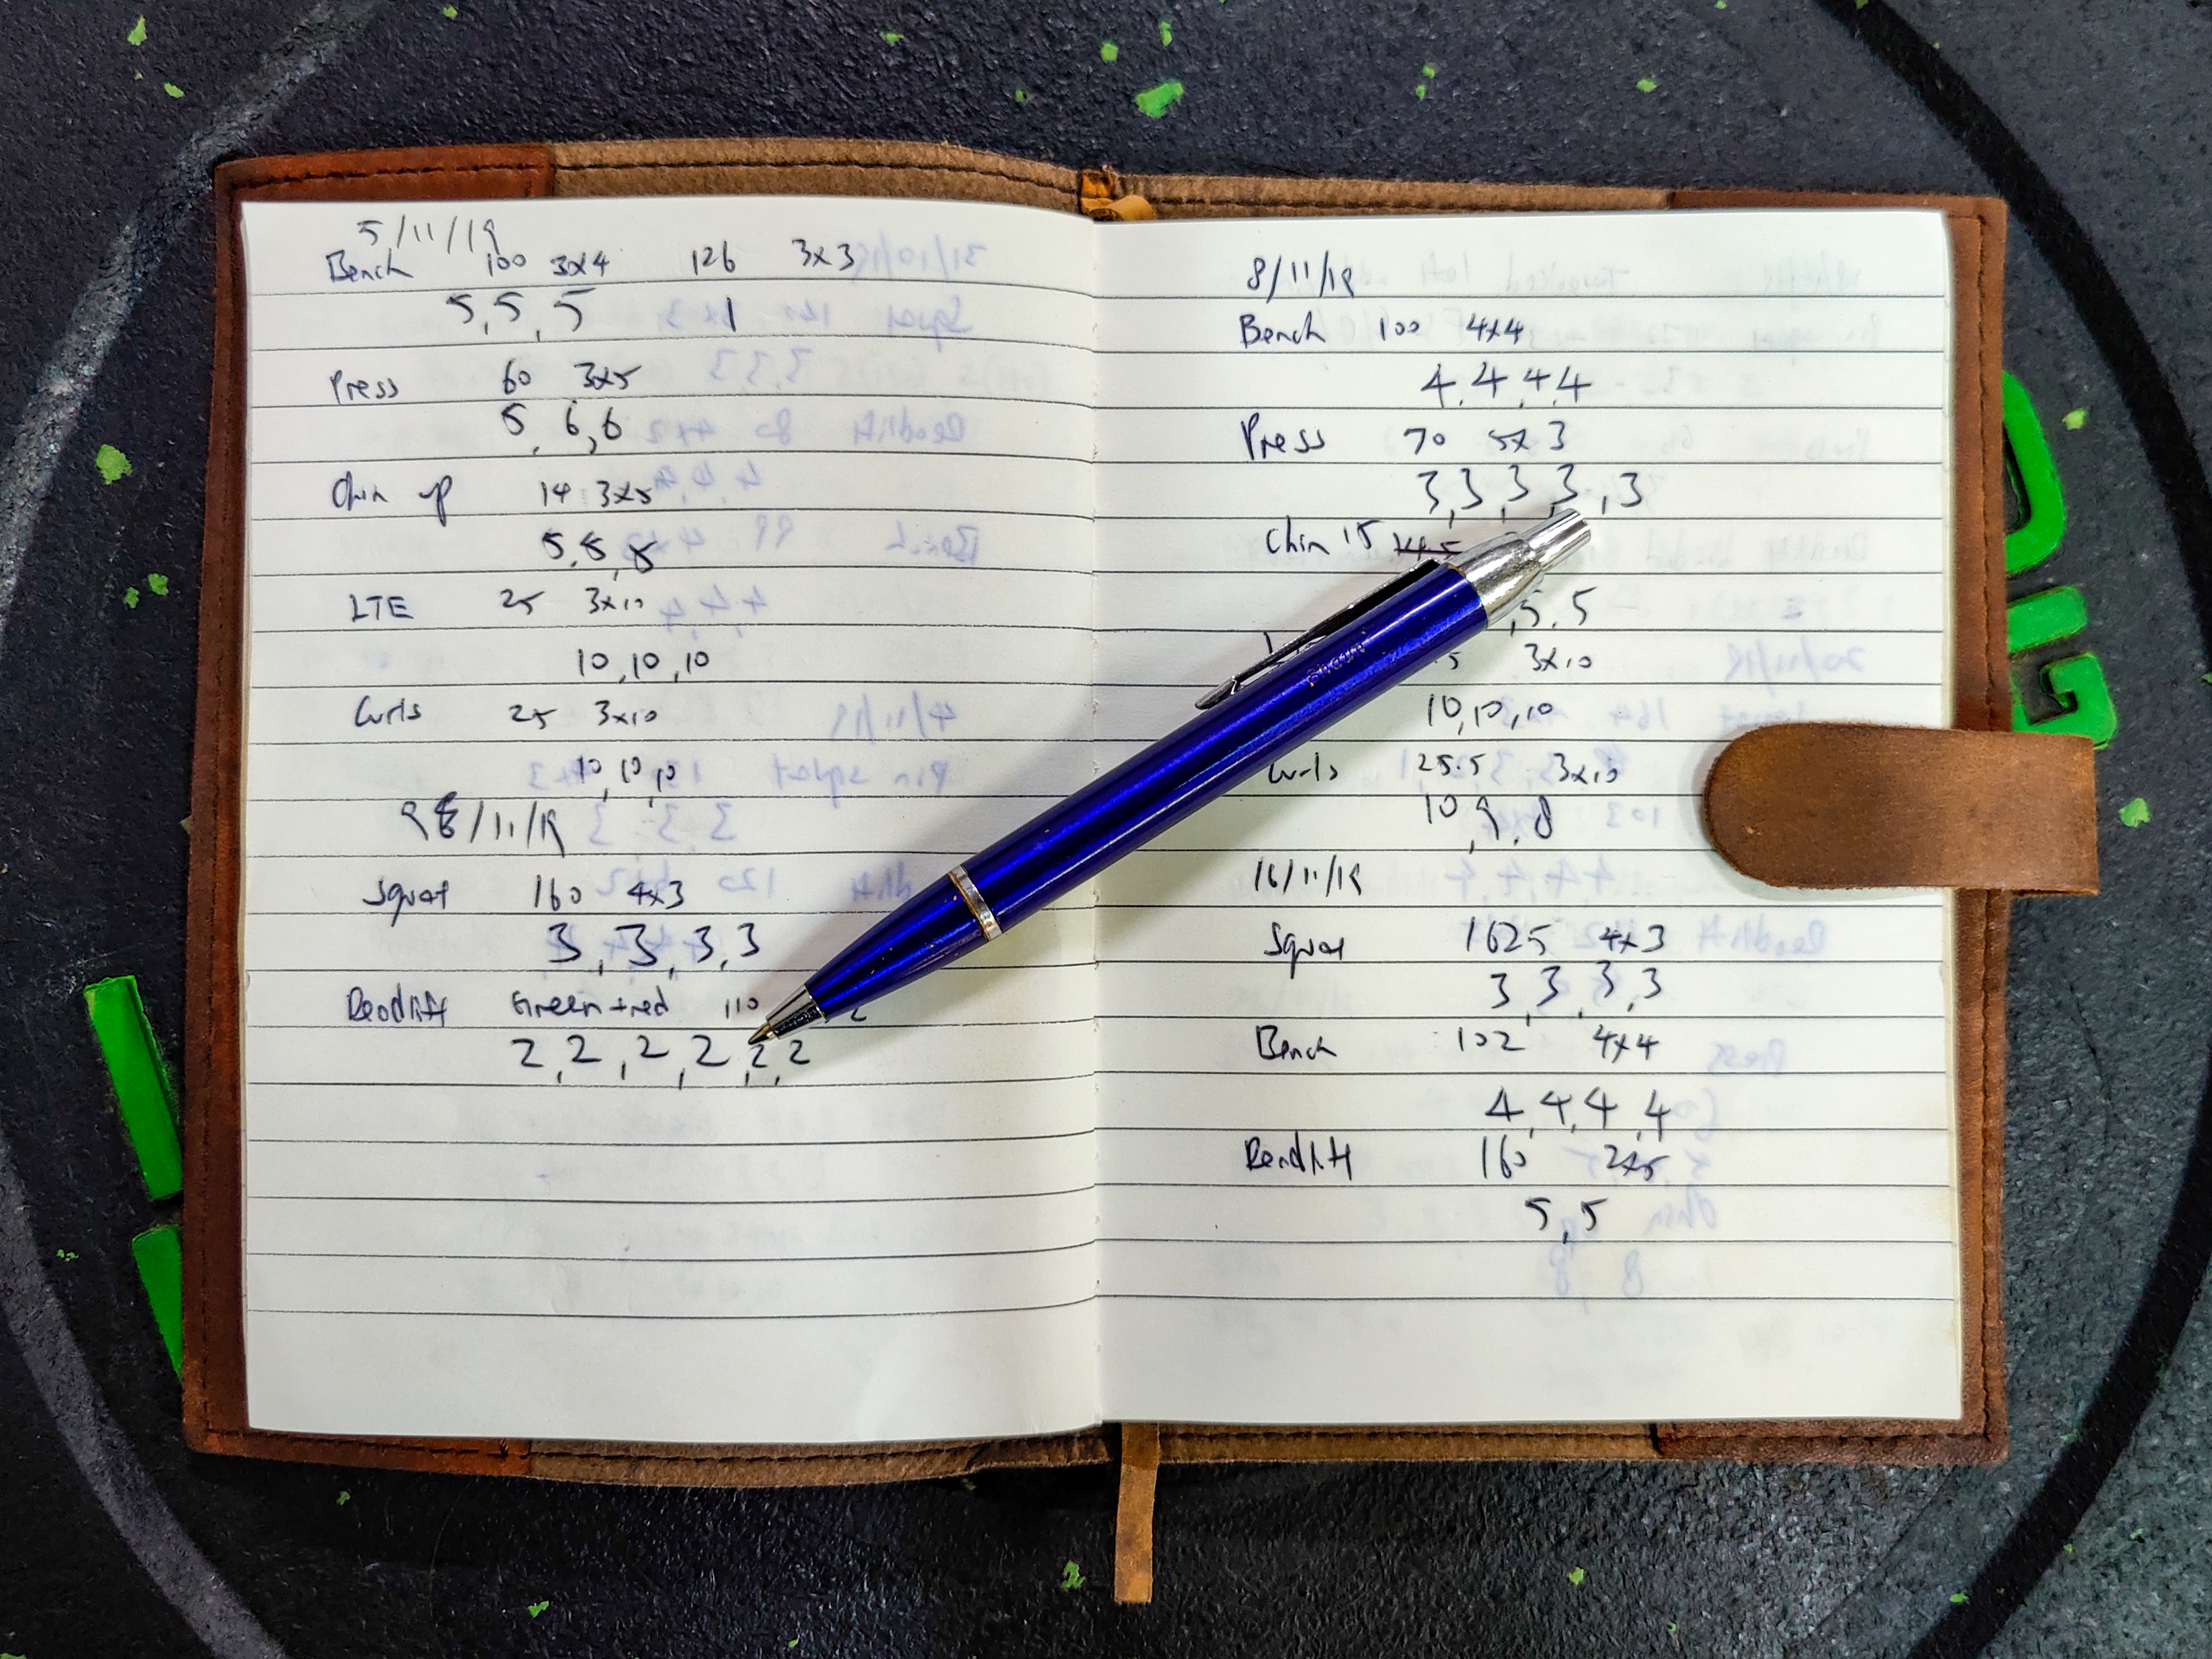 5/11/19
Bench 100 3x4 126 3x3
5,5,5 1
Press 60 3x5
5,6,6
Chin up 14 3x5
5,5,5
LTE 25 3x10
10,10,10
Curls 25 3x10
10,10,10
/11/19
Squat 160 4x3
3,3,3,3
Deadlift Green+red 110
2,2,2,2,2,2
8/11/19
Bench 100 4x4
4,4,4,4
Press 70 5x3
3,3,3,3,3
Chin 15
,5,5
3x10
10,10,10
Curls 25.5 3x10
10,9,8
16/11/19
Squat 162.5 4x3
3,3,3,3
Bench 102 4x4
4,4,4,4
Deadlift 160 2x5
5,5